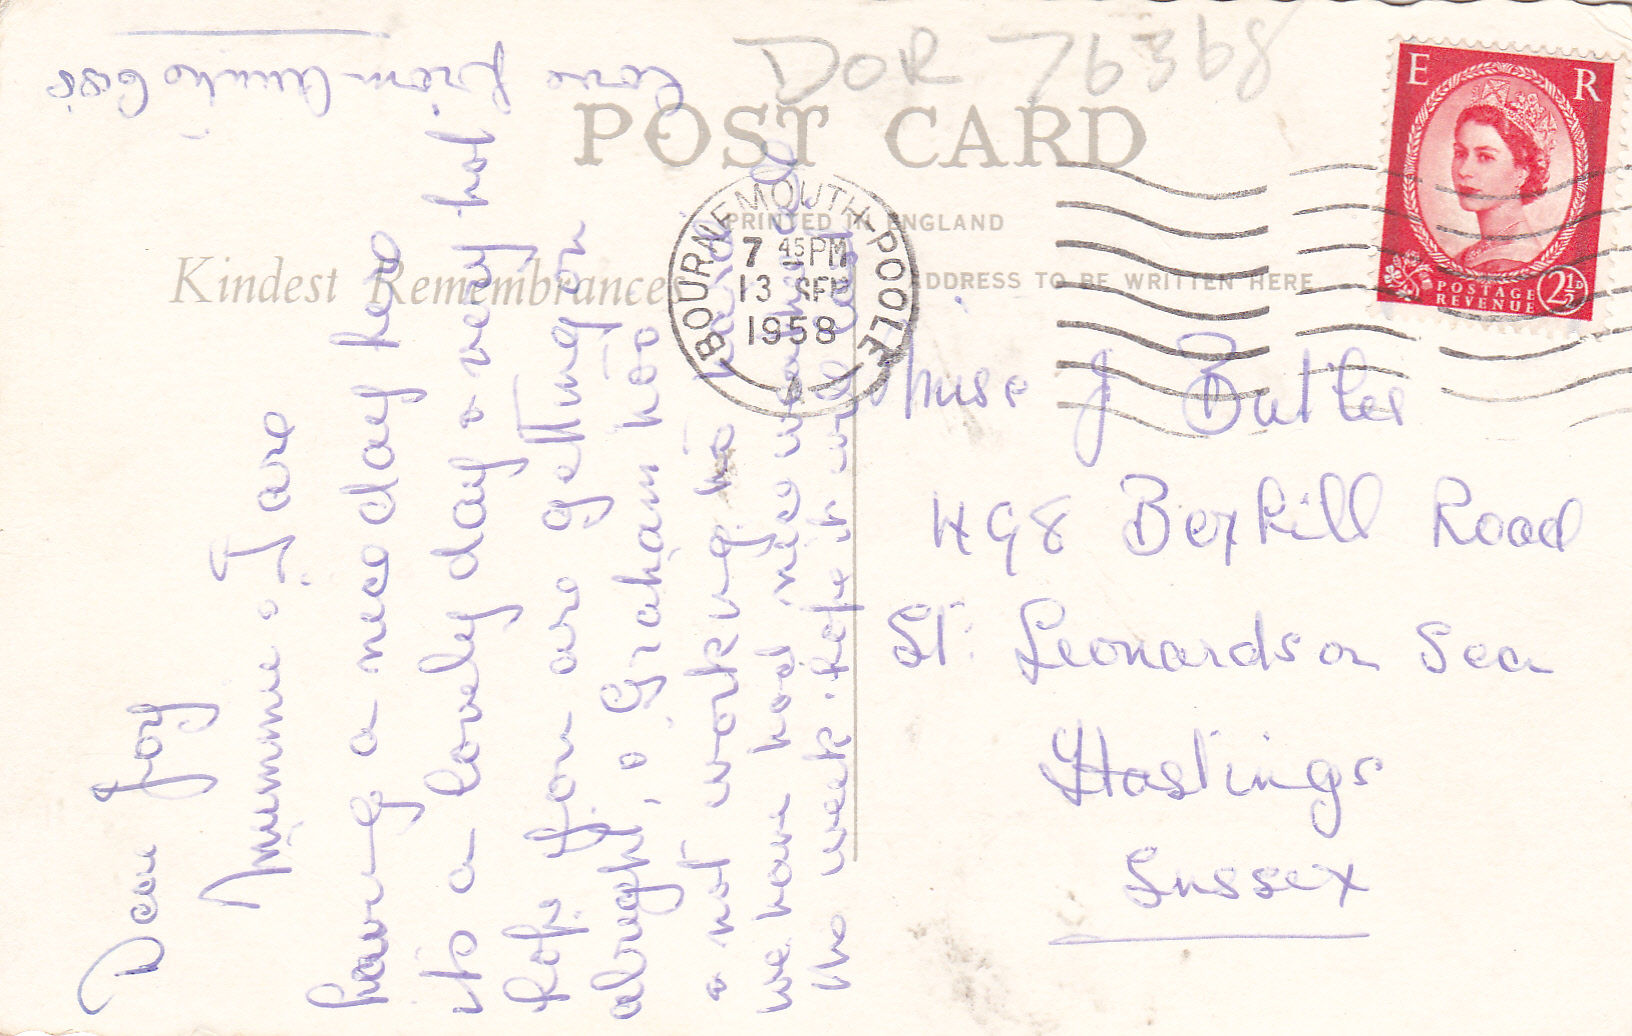 DOR 76368
POST CARD
PRINTED IN ENGLAND
Kindest Remembrances
ADDRESS TO BE WRITTEN HERE
BOURNEMOUTH-POOLE
7 45PM
13 SEP
1958
E R
POSTAGE
REVENUE
2½D
Miss J Butler
498 Bexhill Road
St. Leonards on Sea
Hastings
Sussex
Dear Joy
Mummie & I are
having a nice day here
its a lovely day & very hot
hope you are getting on
alright, & Graham too
& not working to hard
we have had nice weather all
the week. hope it will last
love from Auntie Cissie